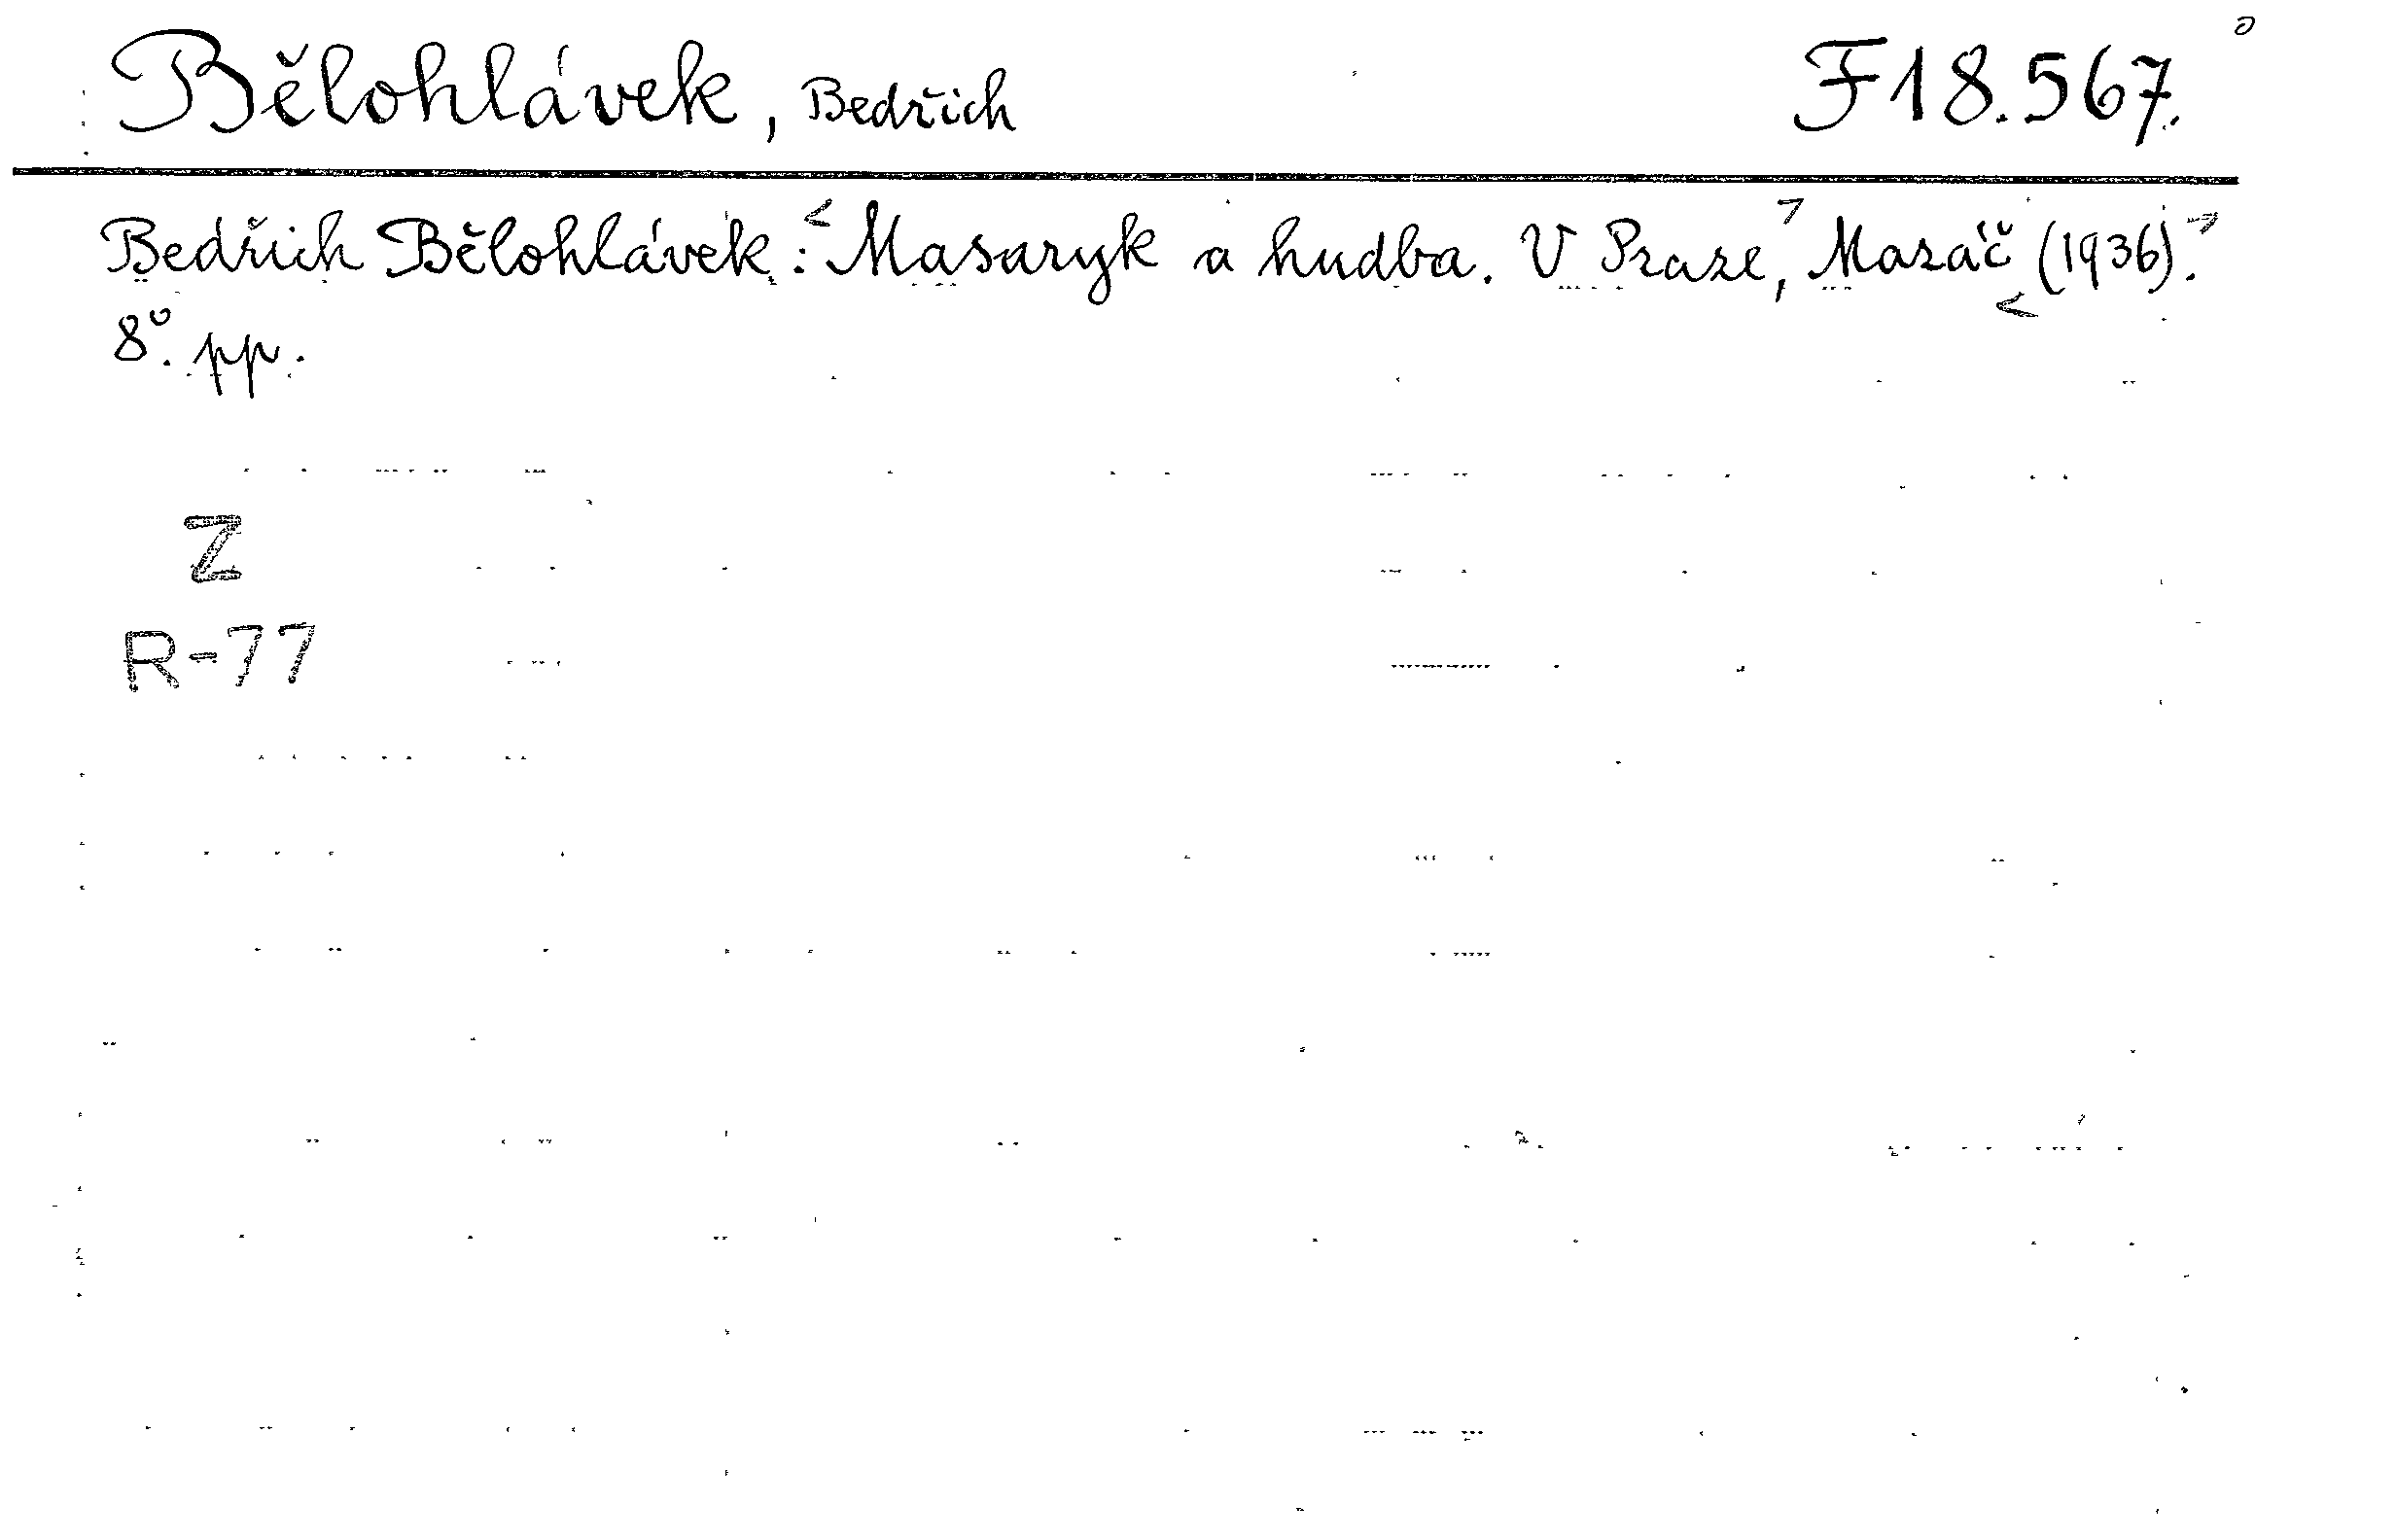 Bělohlávek, Bedřich F18.567.
Bedřich Bělohlávek: <Masaryk a hudba. V Praze,> Mazáč <(1936).>
8°. pp.
Z
R-77